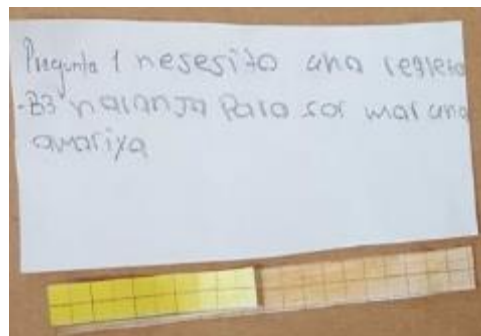 Pregunta 1 nesesito una regleta
-B3 naranja para for mar una
amariya